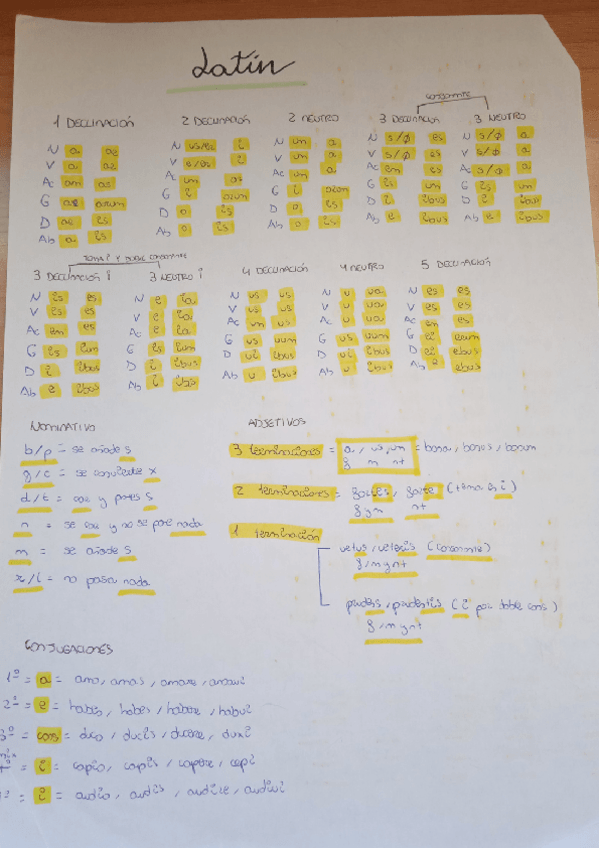 Latín
consonante
1 DECLINACIÓN 2 DECLINACIÓN 2 NEUTRO 3 DECLINACIÓN 3 NEUTRO
N a ae N us/er i N um a N s/ø es N s/ø a
V a ae V e/us i V um a V s/ø es V s/ø a
Ac am as Ac um os Ac um a Ac em es Ac s/ø a
G ae arum G i orum G i orum G is um G is um
D ae is D o is D o is D i ibus D i ibus
Ab a is Ab o is Ab o is Ab e ibus Ab e ibus
tema i y doble consonante
3 DECLINACIÓN i 3 NEUTRO i 4 DECLINACIÓN 4 NEUTRO 5 DECLINACIÓN
N is es N e ia N us us N u ua N es es
V is es V e ia V us us V u ua V es es
Ac em es Ac e ia Ac um us Ac u ua Ac em es
G is ium G is ium G us uum G us uum G ei erum
D i ibus D i ibus D ui ibus D ui ibus D ei ebus
Ab e ibus Ab i ibus Ab u ibus Ab u ibus Ab e ebus
NOMINATIVO ADJETIVOS
b/p = se añade s 3 terminaciones = a, us, um = bona, bonus, bonum
g/c = se convierte x f m nt
d/t = cae y pones s 2 terminaciones = fortis, forte (tema en i)
n = se cae y no se pone nada f y m nt
m = se añade s 1 terminación
r/l = no pasa nada vetus, veteris (consonante)
f, m y nt
(i por doble cons)
f, m y nt
CONJUGACIONES
1º = a = amo, amas, amare, amavi
2º = e = habes, habere, habui
3º = cons = duco, ducis, ducere, duxi
= i = capio, capis, capere, cepi
= i = audio, audis, audire, audivi